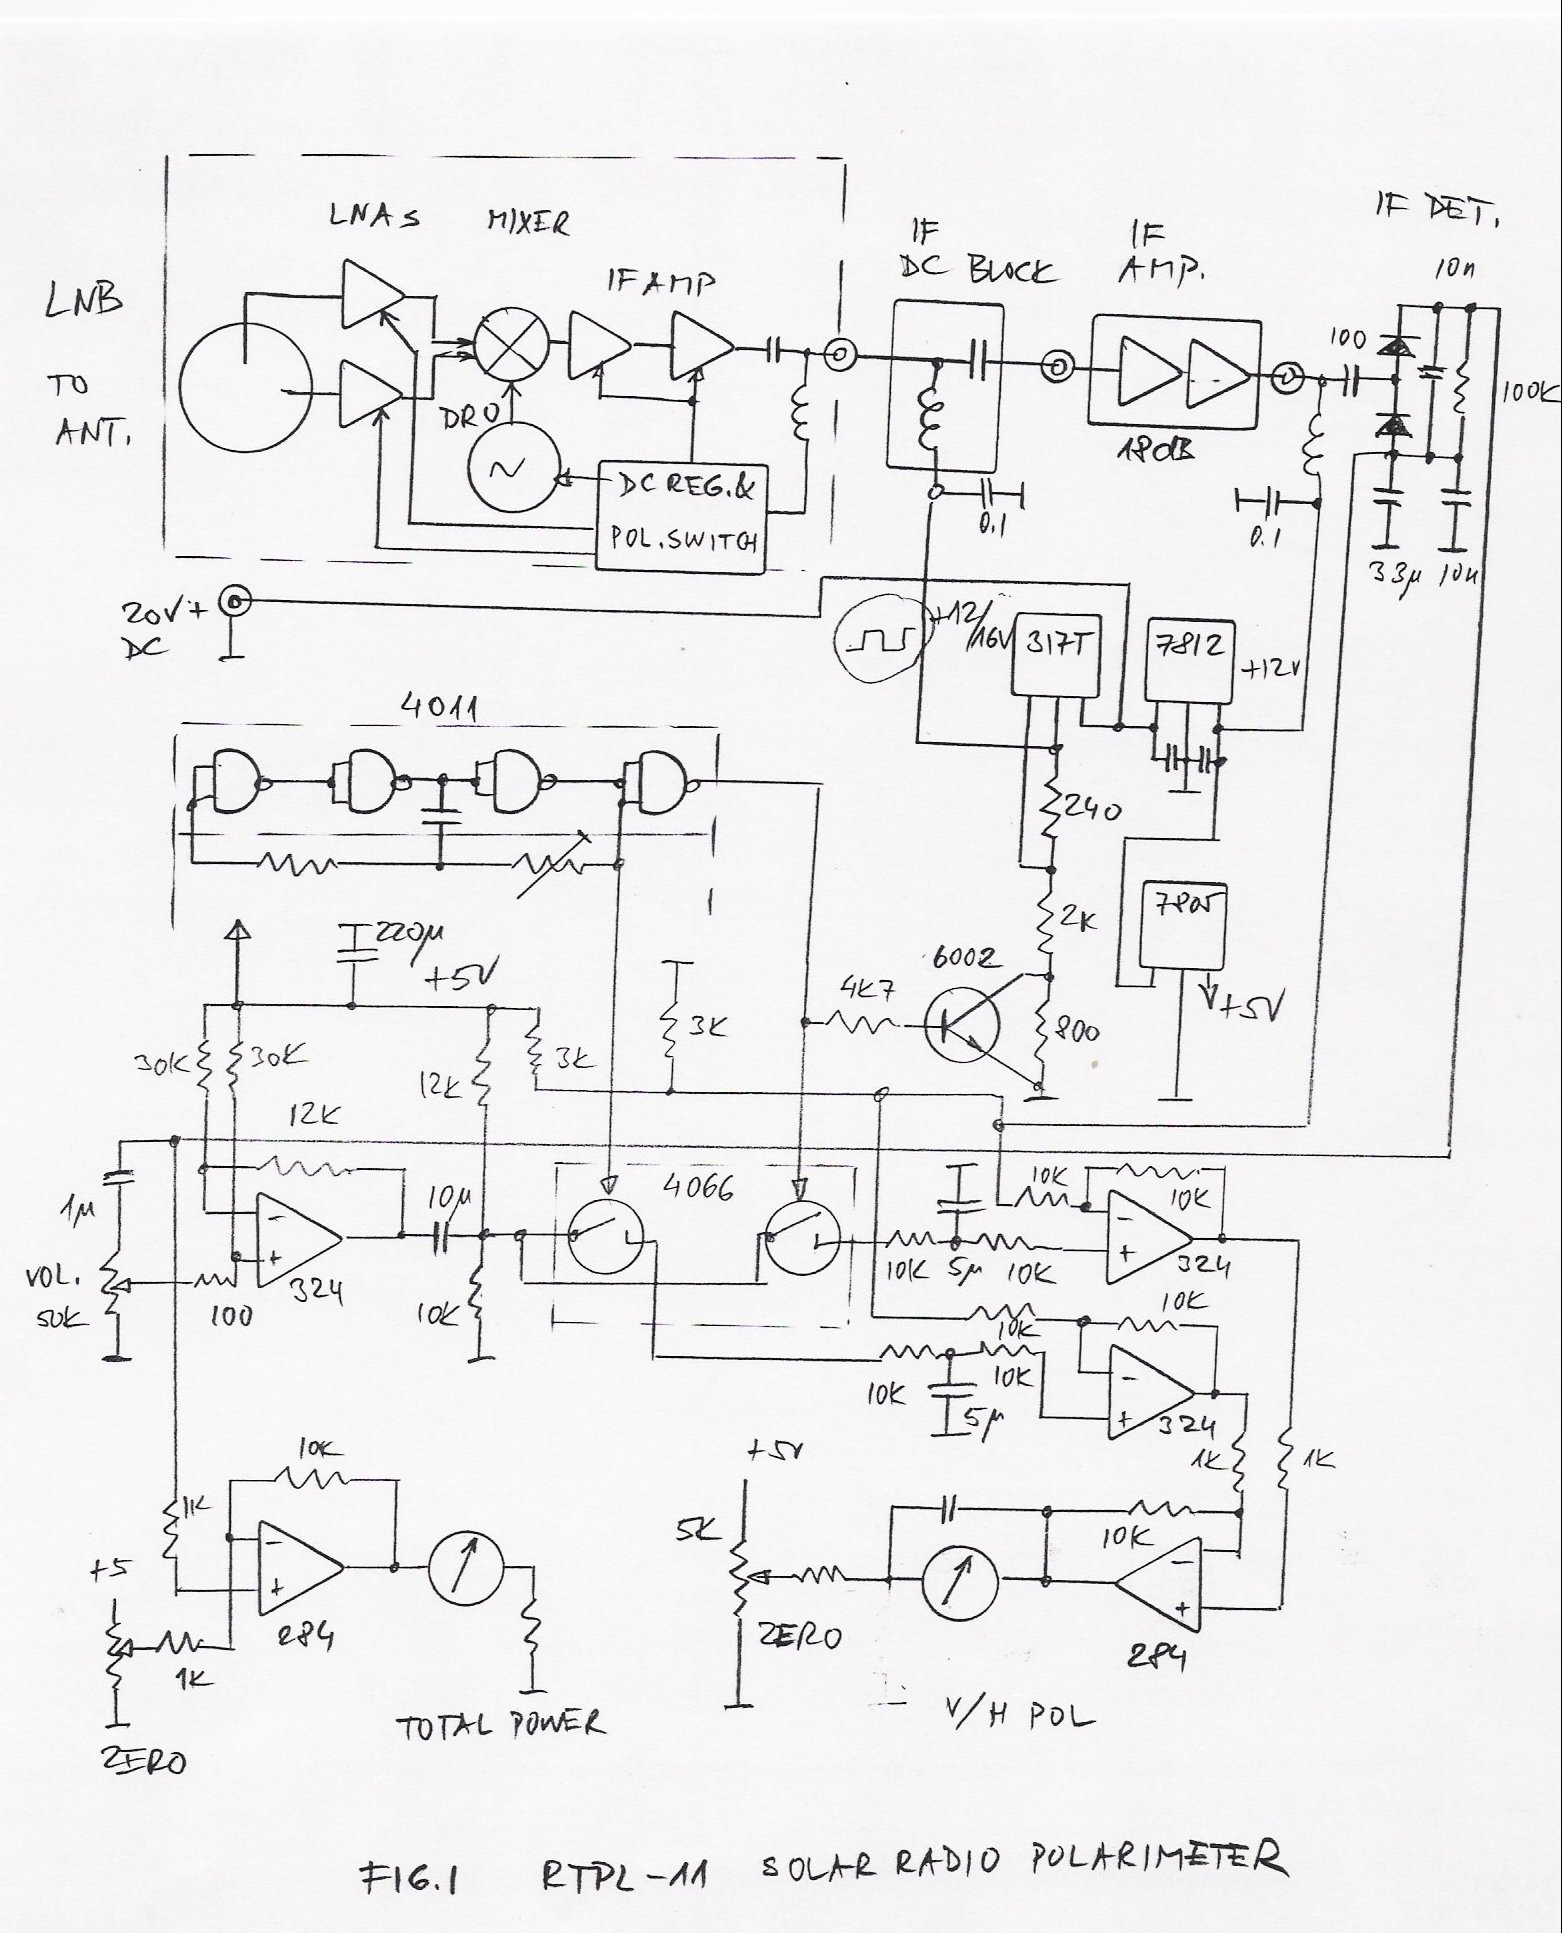 LNAS
MIXER
IF AMP
LNB
TO
ANT.
DRO
DC REG. &
POL. SWITCH
IF
DC BLOCK
0.1
IF
AMP.
18dB
IF DET.
10n
100
100K
0.1
33µ
10n
20V+
DC
+12/16V
317T
7812
+12V
4011
240
2K
7805
+5V
220µ
+5V
6002
4K7
800
30K
30K
12K
3K
3K
12K
1µ
VOL.
50K
100
324
10µ
10K
4066
10K
5µ
10K
10K
10K
324
10K
10K
10K
5µ
10K
324
1K
1K
10K
1K
+5
284
1K
ZERO
TOTAL POWER
+5V
5K
ZERO
10K
284
V/H POL
FIG.1 RTPL-11 SOLAR RADIO POLARIMETER